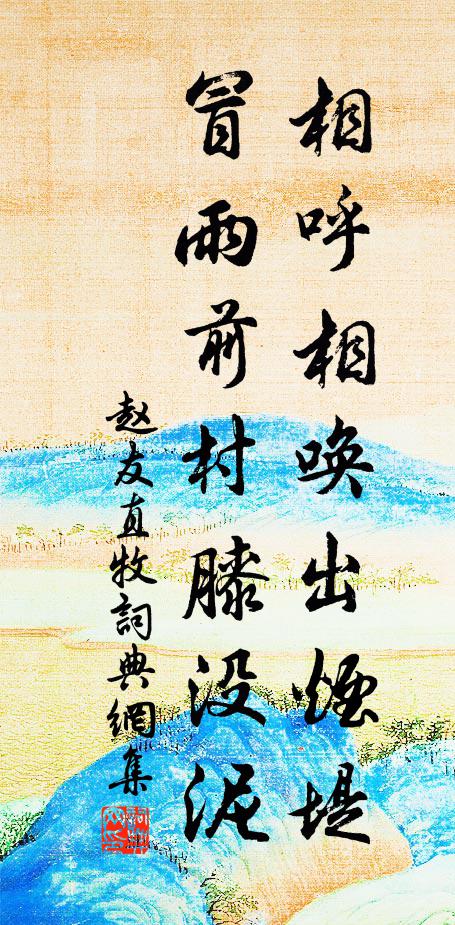 相呼相唤出烟堤
冒雨前村膝没泥
赵友直牧詞典網集